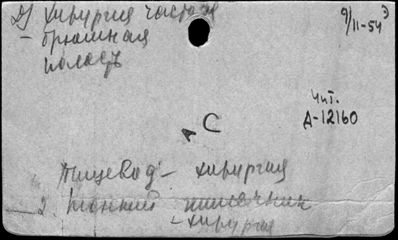 2) Хирургия частная
9/II-54
- брюшная
полость
Чит.
А-12160
А С
Пищевод - хирургия
2. Тонкий кишечник
- хирургия